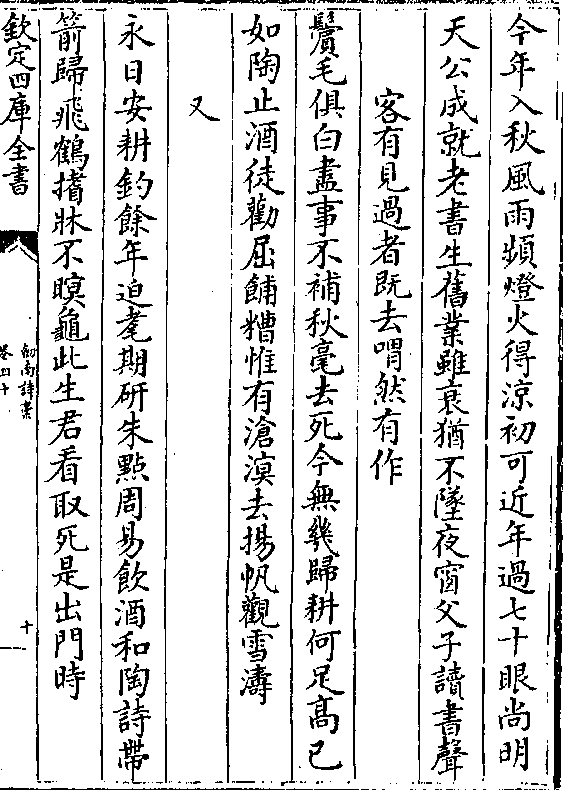 今年入秋風雨頻燈火得涼初可近年過七十眼尚明
天公成就老書生舊業雖衰猶不墜夜窗父子讀書聲
客有見過者既去喟然有作
鬢毛俱白盡事不補秋毫去死今無幾歸耕何足高已
如陶止酒徒勸屈餔糟惟有滄溟去揚帆觀雪濤
又
永日安耕釣餘年迫耄期研朱點周易飲酒和陶詩帶
箭歸飛鶴搘牀不瞑龜此生君看取死是出門時
欽定四庫全書
劍南詩藁
卷四十
十